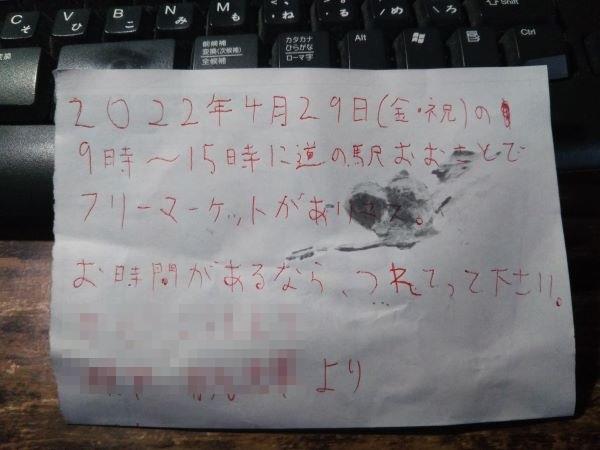 C そ V ひ B こ N み M も , ね . る / め \ ろ
前候補 カタカナ Alt Ctrl
変換(次候補) ひらがな
全候補 ローマ字
2022年4月29日(金・祝)の
9時〜15時に道の駅おお とで
フリーマーケットがあります。
お時間があるなら、つれてって下さい。
より